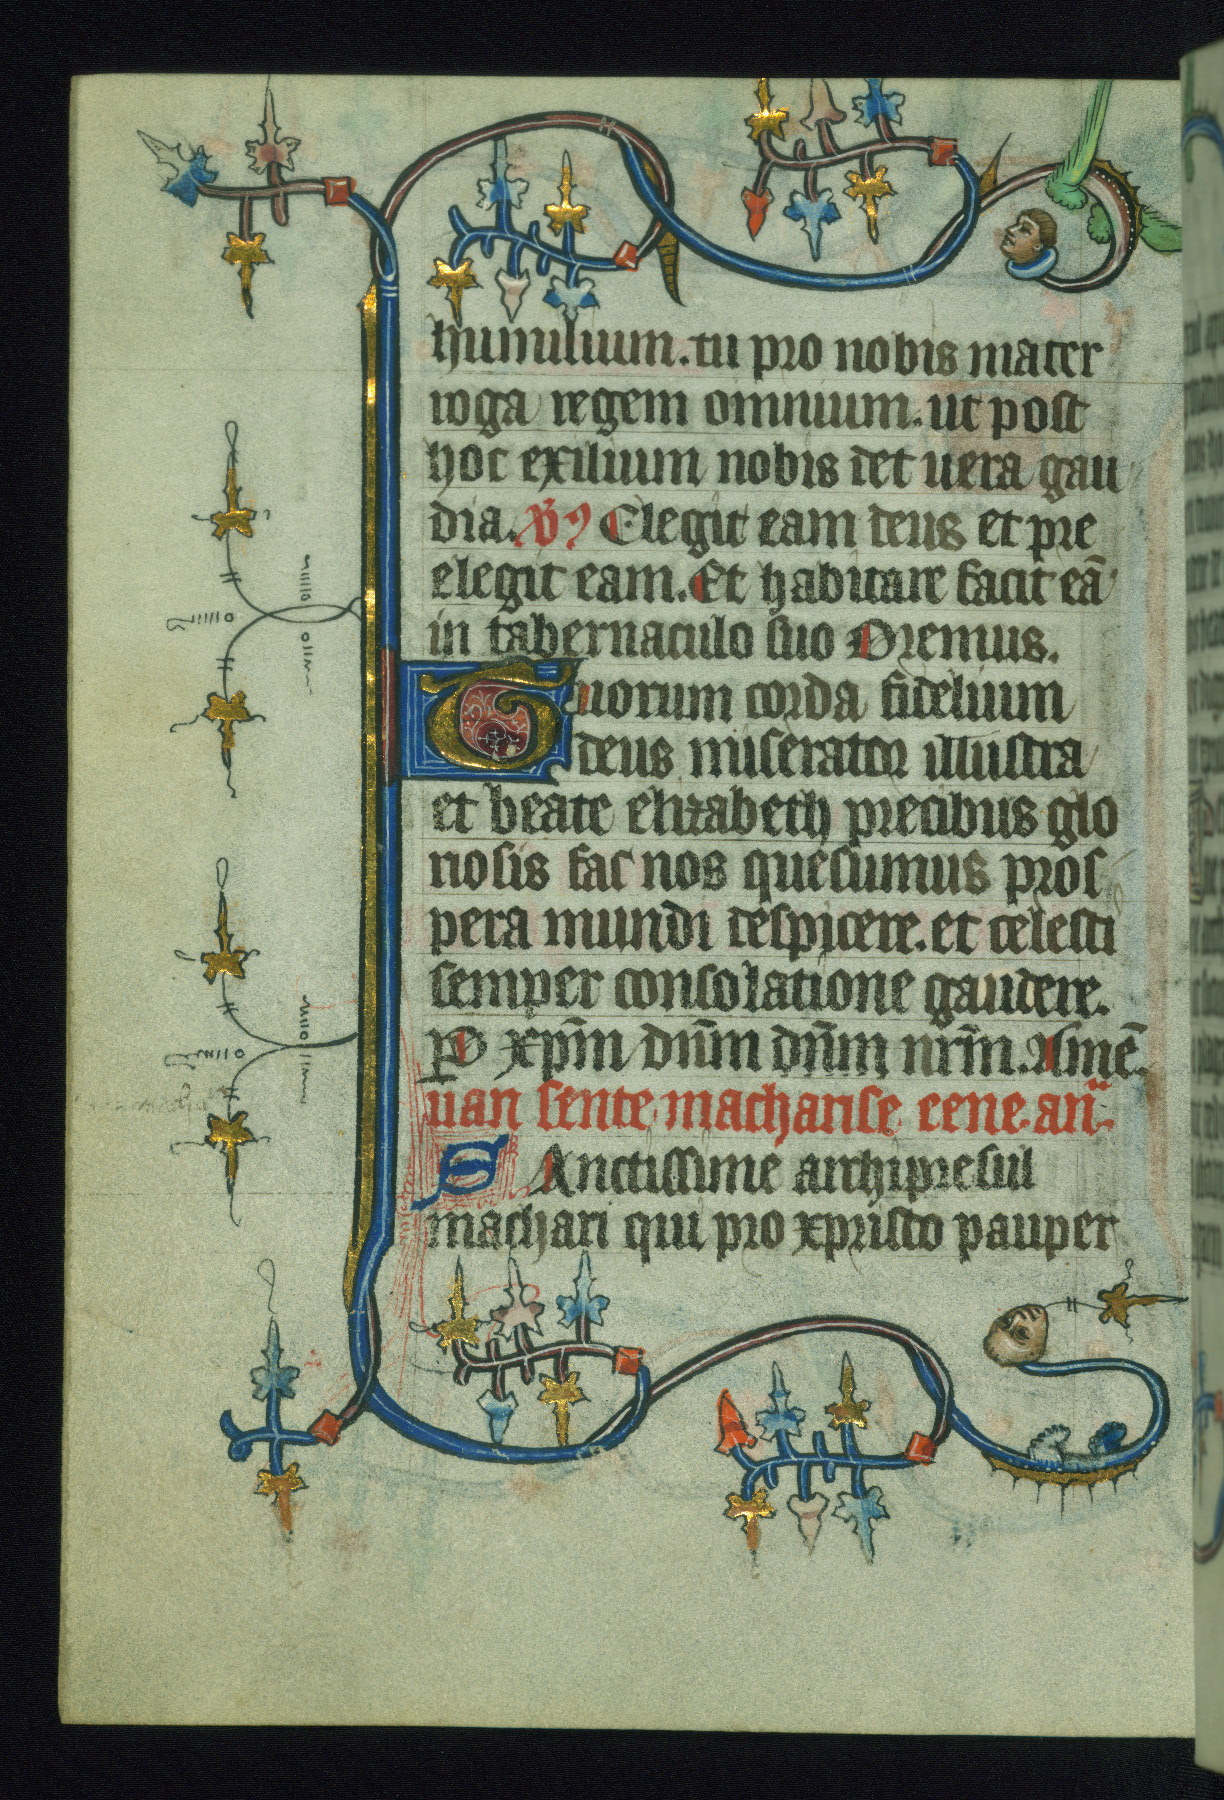 humilium. tu pro nobis mater
roga regem omnium. ut post
hoc exilium nobis det uera gau
dia. Elegit eam deus et pre
elegit eam. Et habitare facit eā
in tabernaculo suo Oremus.
Tuorum corda fidelium
deus miserator illustra
et beate elizabeth precibus glo
riosis fac nos quesumus pros
pera mundi despicere. et celesti
semper consolatione gaudere.
P xp̄m dn̄m dn̄m nr̄m. Amē.
uan sente macharise eene an̄
SAnctissime archipresul
machari qui pro xpristo pauper